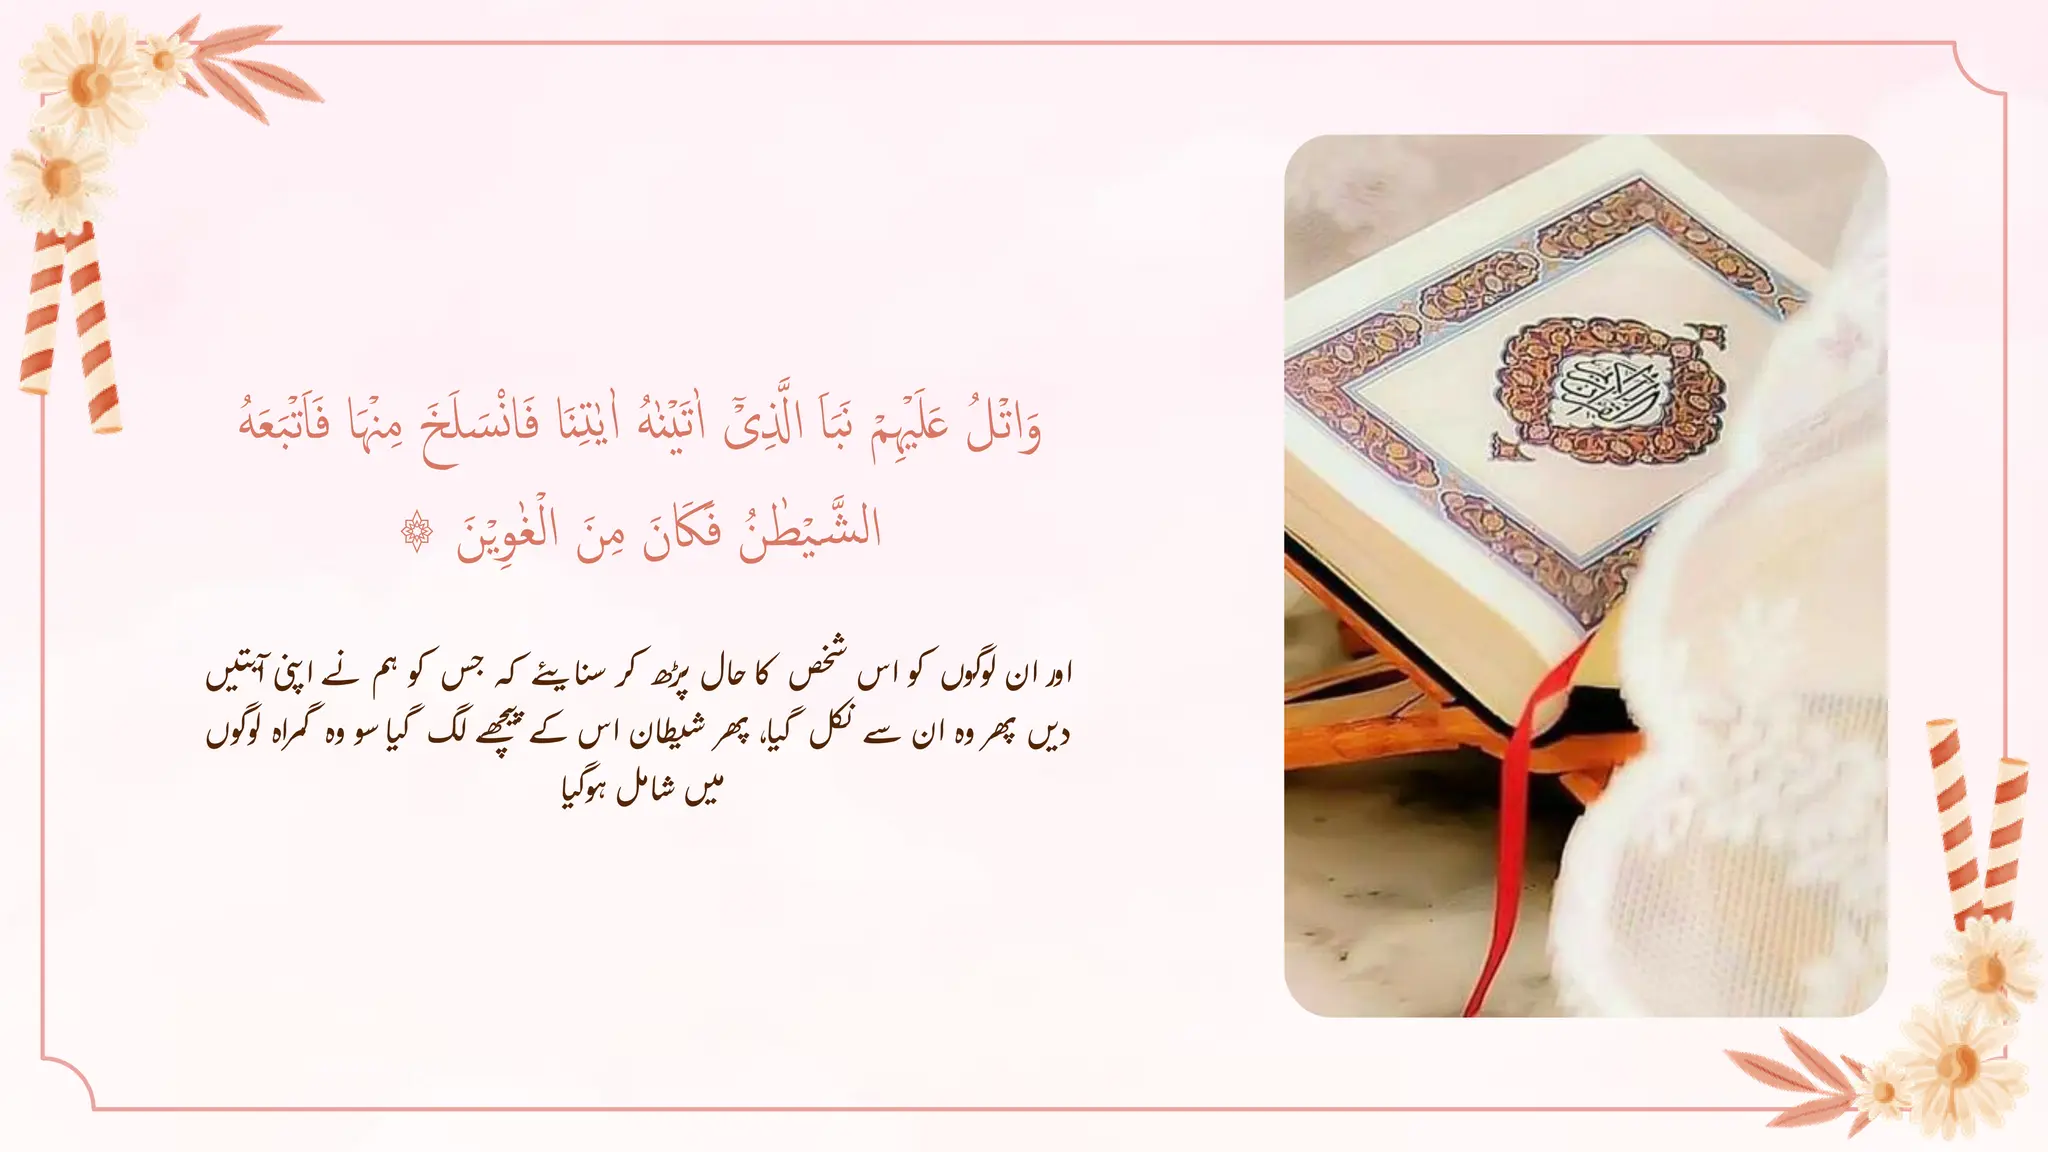 وَاتْلُ عَلَيْهِمْ نَبَاَ الَّذِىْٓ اٰتَيْنٰهُ اٰيٰتِنَا فَانْسَلَخَ مِنْهَا فَاَتْبَعَهُ
الشَّيْطٰنُ فَكَانَ مِنَ الْغٰوِيْنَ ۞
اور ان لوگوں کو اس شخص کا حال پڑھ کر سنایئے کہ جس کو ہم نے اپنی آیتیں
دیں پھر وہ ان سے نکل گیا، پھر شیطان اس کے پیچھے لگ گیا سو وہ گمراہ لوگوں
میں شامل ہوگیا
القرآن الكريم